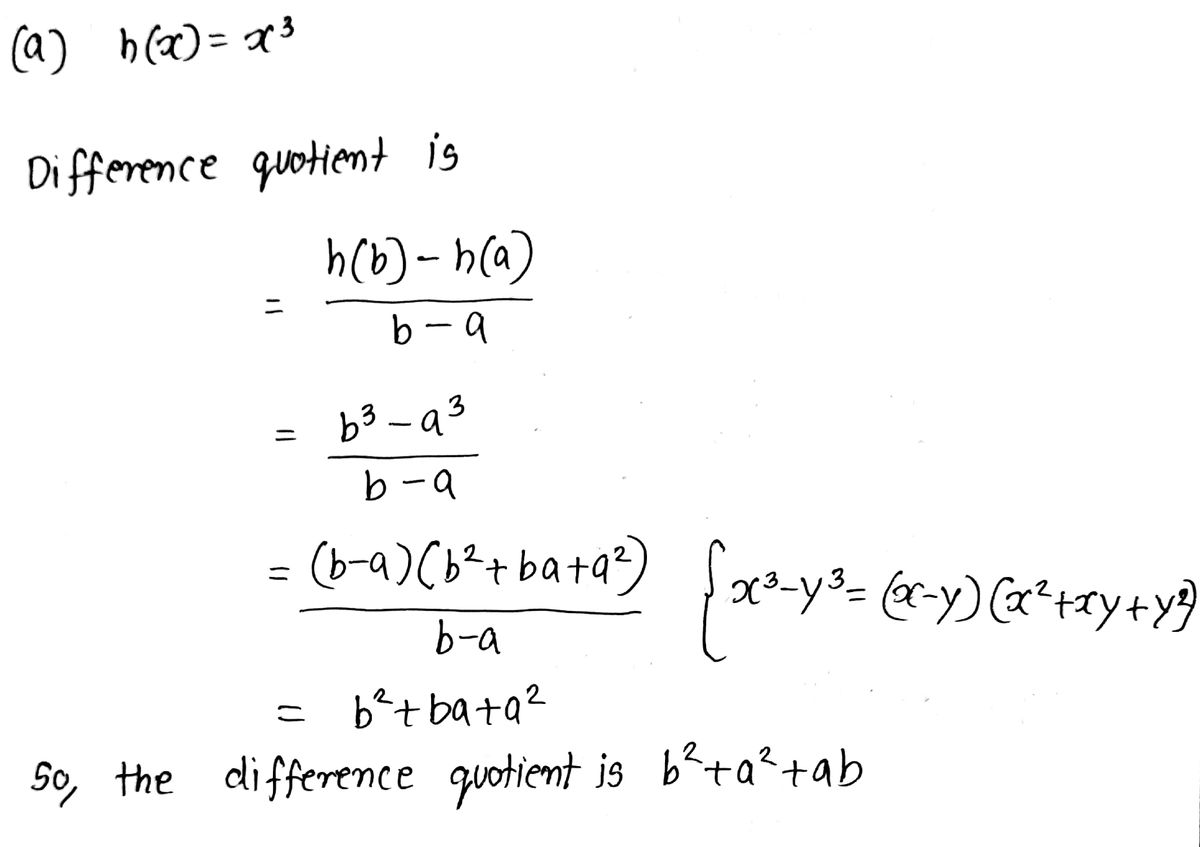 (a) h(x) = x³
Difference quotient is
= h(b) - h(a) / b - a
= b³ - a³ / b - a
= (b-a)(b²+ba+a²) / b-a { x³-y³= (x-y)(x²+xy+y²)
= b²+ba+a²
So, the difference quotient is b²+a²+ab